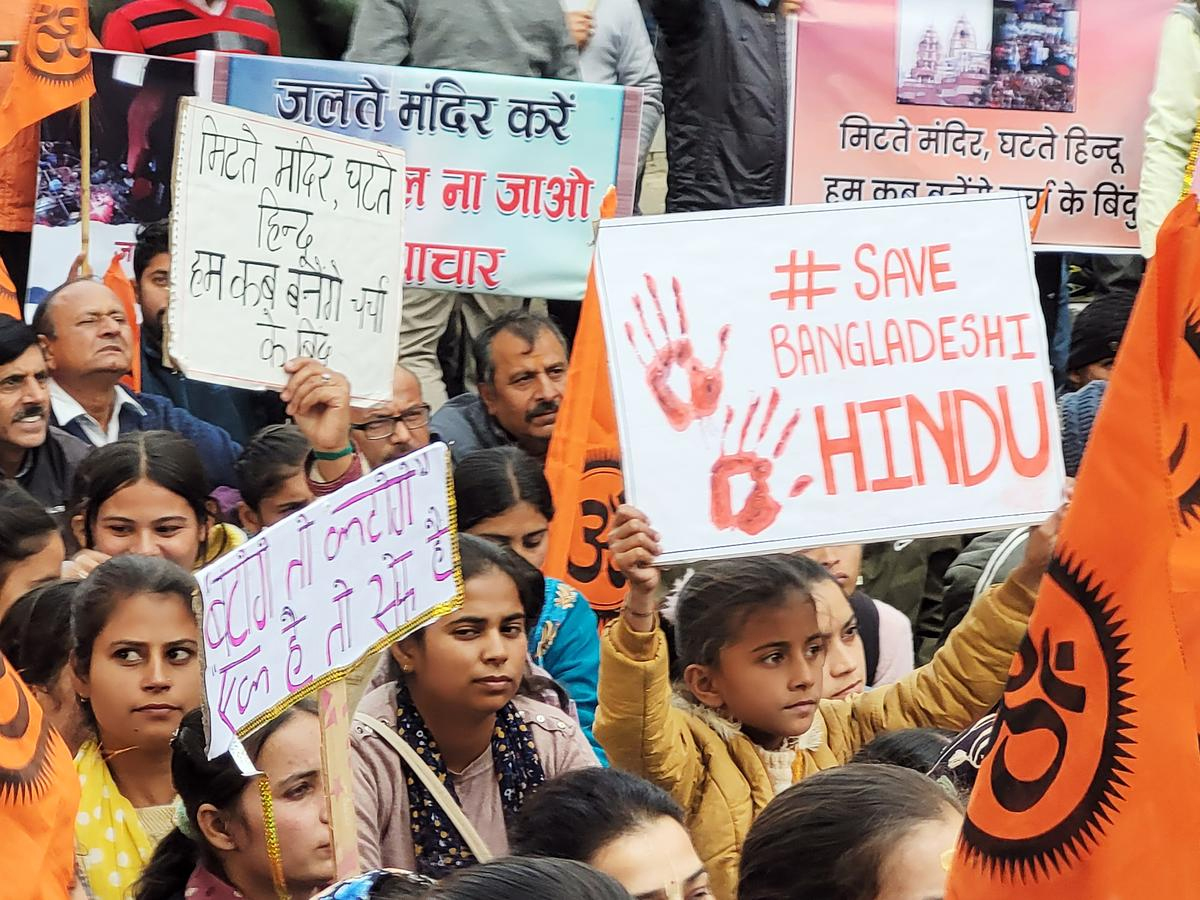 जलते मंदिर करें
ल ना जाओ
मिटते मंदिर, घटते
हिन्दू
हम कब बनेंगे चर्चा
के बिंदु
मिटते मंदिर, घटते हिन्दू
हम कब बनेंगे चर्चा के बिंदु
# SAVE
BANGLADESHI
HINDU
बटोगे तो कटोगे"
"एक है तो सेफ है
ॐ
ॐ
ॐ